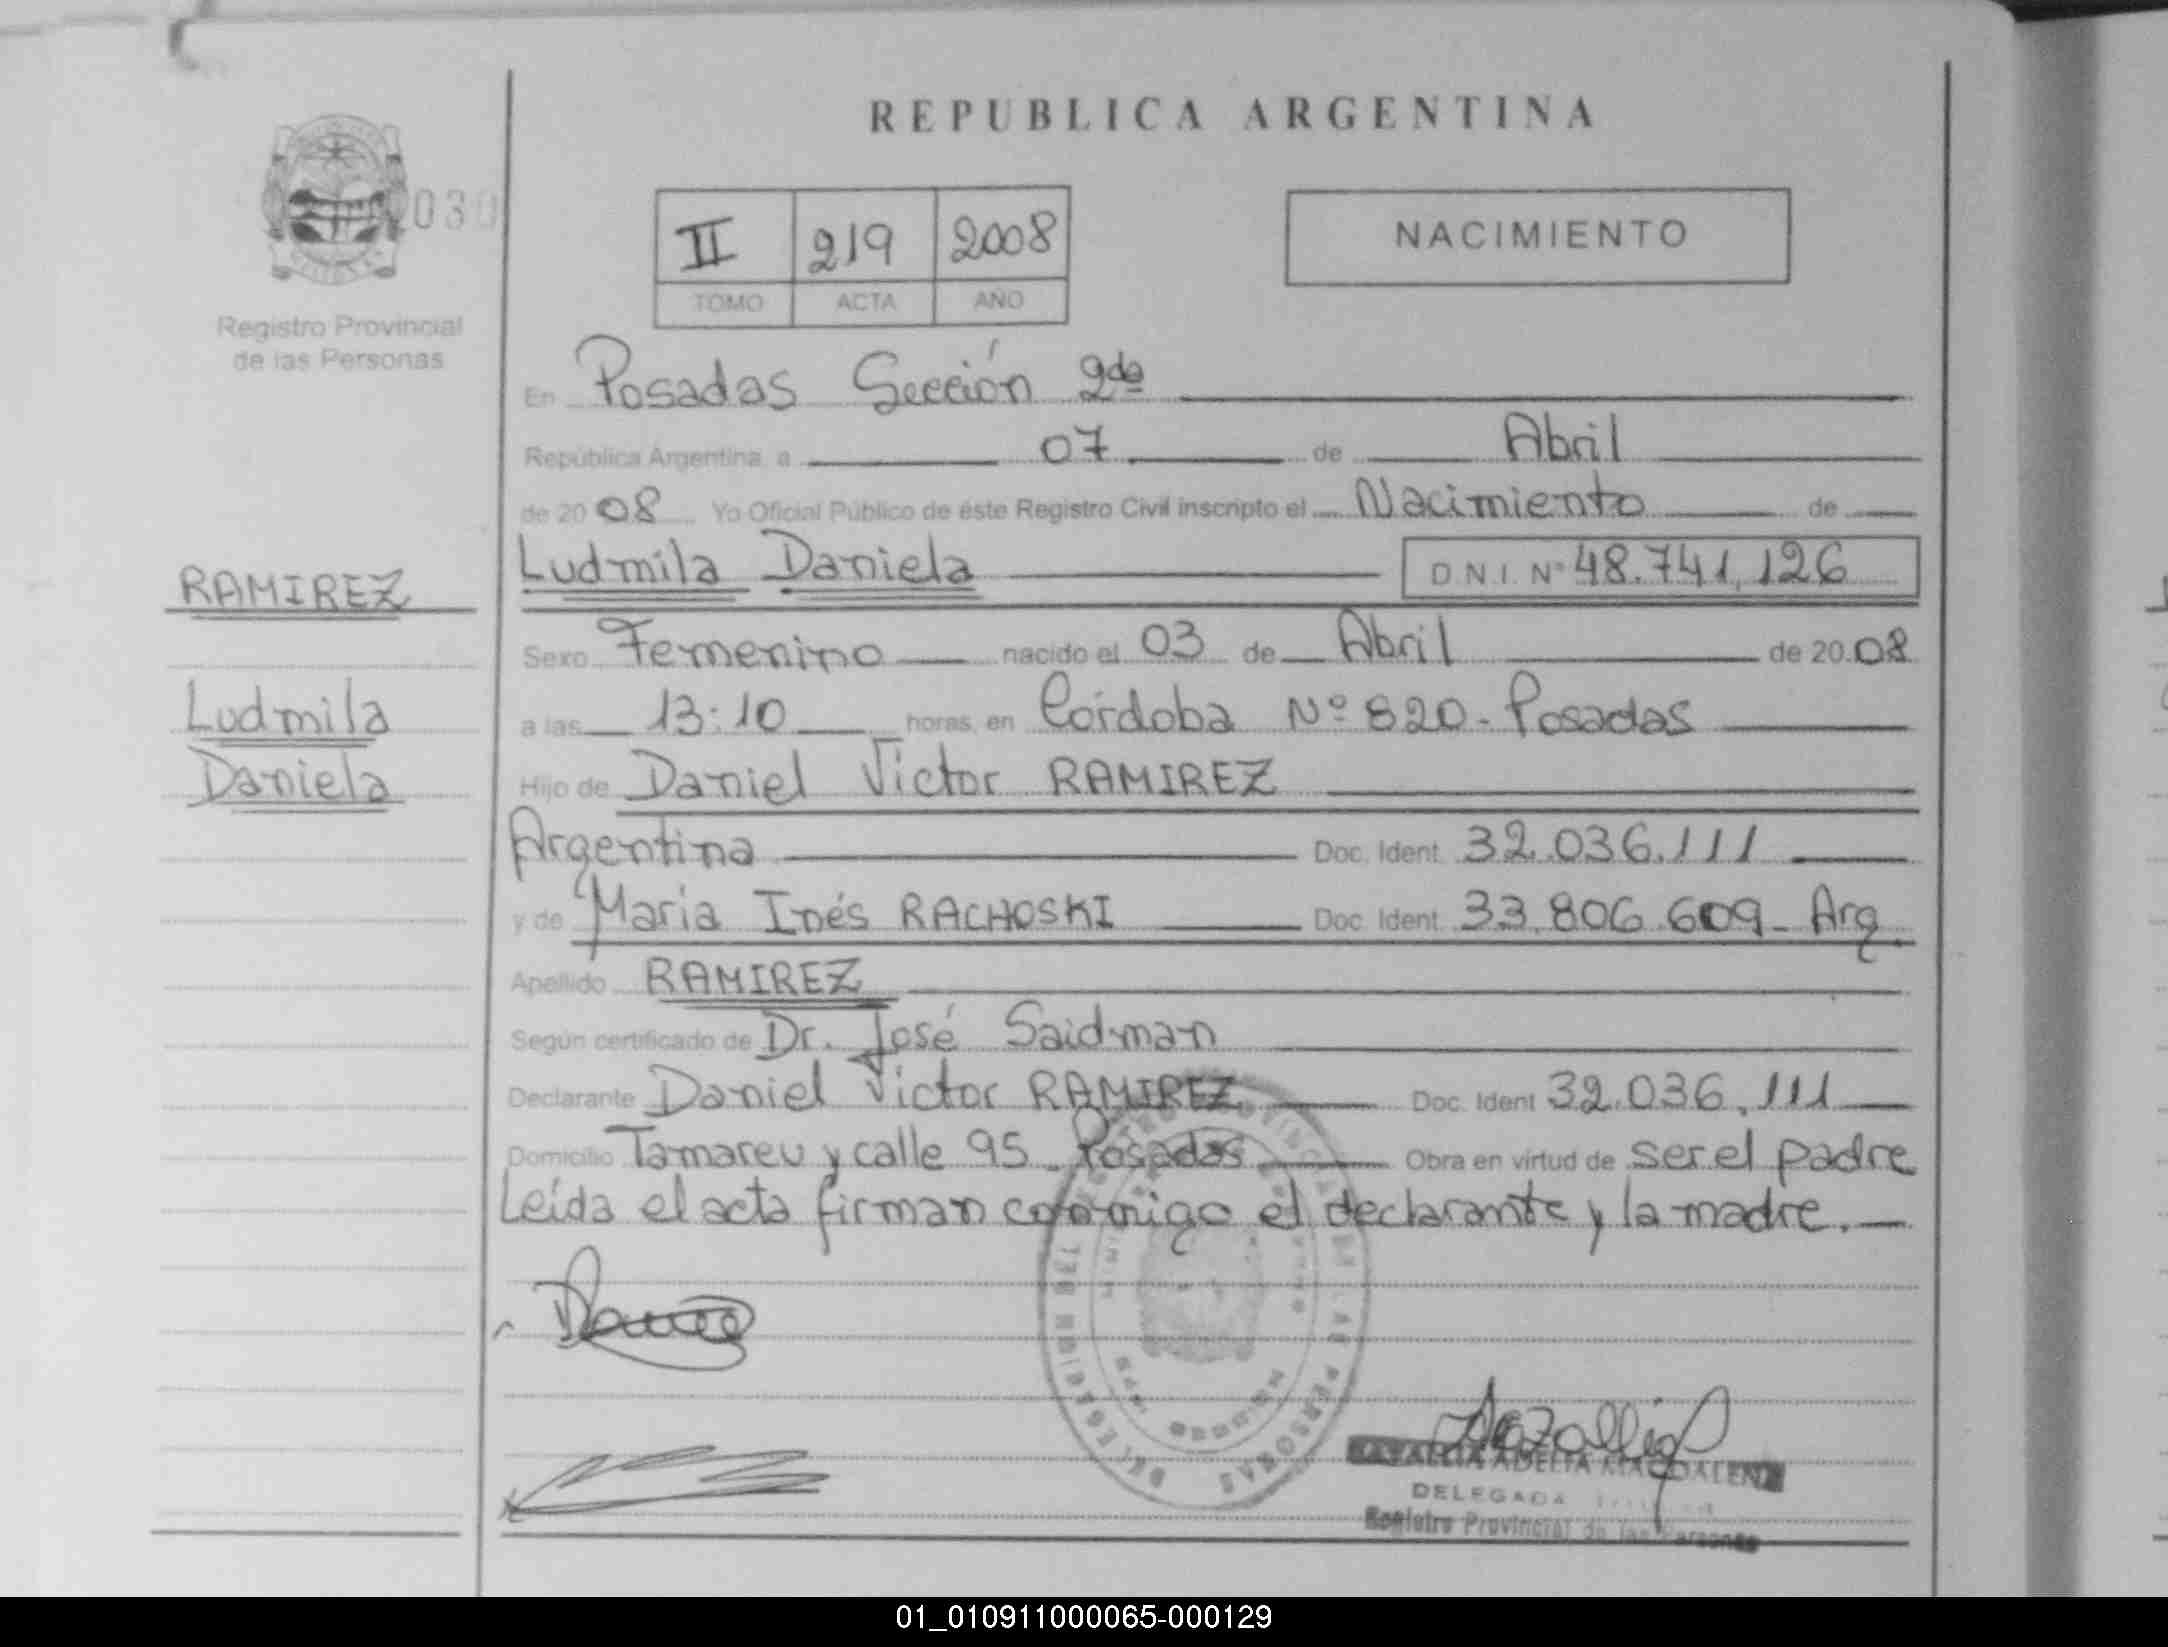 REPUBLICA ARGENTINA
030
Registro Provincial
de las Personas
II 219 2008
TOMO ACTA AÑO
NACIMIENTO
En Posadas Sección 2da
República Argentina, a 07 de Abril
de 2008 Yo Oficial Público de éste Registro Civil inscripto el Nacimiento de
RAMIREZ
Ludmila Daniela D.N.I. Nº 48.741.126
Sexo Femenino nacido el 03 de Abril de 2008
Ludmila
a las 13:10 horas, en Córdoba Nº 820 - Posadas
Daniela
Hijo de Daniel Victor RAMIREZ
Argentina Doc. Ident. 32.036.111
y de Maria Inés RACHOSKI Doc. Ident. 33.806.609 - Arg.
Apellido RAMIREZ
Según certificado de Dr. José Saidman
Declarante Daniel Victor RAMIREZ Doc. Ident 32.036.111
Domicilio Tamareu y calle 95 - Posadas Obra en virtud de ser el padre
Leída el acta firman conmigo el declarante y la madre.
ADELIA MAGDALENA
DELEGADA
Registro Provincial de las Personas
01_010911000065-000129